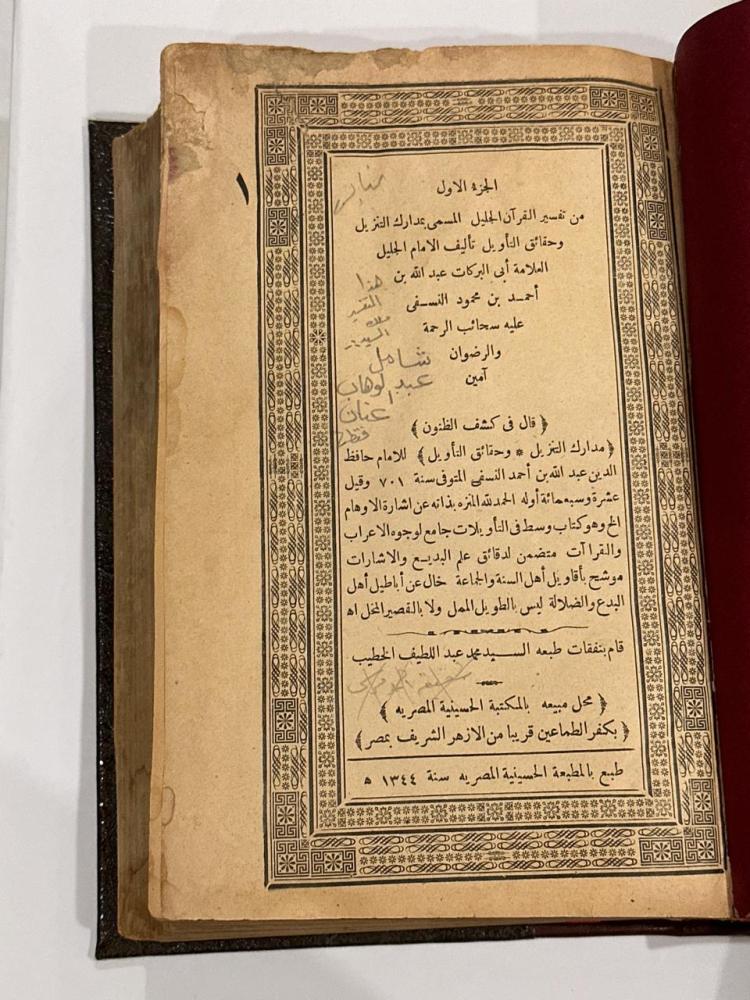 ١
الجزء الاول
من تفسير القرآن الجليل المسمى بمدارك التنزيل
وحقائق التأويل تأليف الامام الجليل
العلامة أبى البركات عبد الله بن
أحمد بن محمود النسفى
عليه سحائب الرحمة
والرضوان
آمين
هذا
شامل
عبد الوهاب
عنان
فقط
﴿ قال فى كشف الظنون ﴾
﴿ مدارك التنزيل * وحقائق التأويل ﴾ للامام حافظ
الدين عبد الله بن أحمد النسفى المتوفى سنة ٧٠١ وقيل
عشرة وسبعمائة أوله الحمد لله المنزه بذاته عن اشارة الاوهام
الخ وهو كتاب وسط فى التأويلات جامع لوجوه الاعراب
والقرا آت متضمن لدقائق علم البديع والاشارات
موشح بأقاويل أهل السنة والجماعة خال عن أباطيل أهل
البدع والضلالة ليس بالطويل الممل ولا بالقصير المخل اه
قام بنفقات طبعه السيد محمد عبد اللطيف الخطيب
﴿ محل مبيعه بالمكتبة الحسينية المصريه ﴾
﴿ بكفر الطماعين قريبا من الازهر الشريف بمصر ﴾
طبع بالمطبعة الحسينية المصريه سنة ١٣٤٤ ه